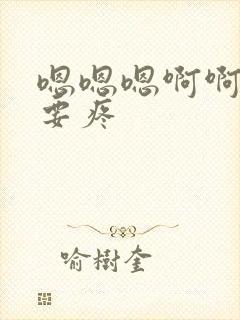 嗯嗯嗯啊啊
要疼
喻樹奎